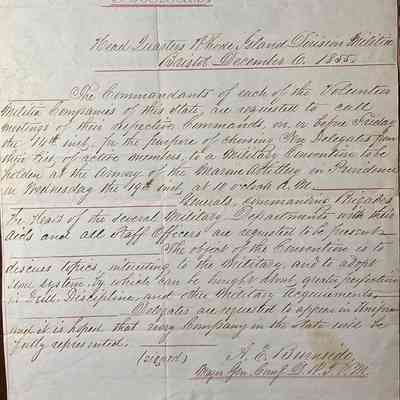 Head Quarters Rhode Island Division Militia
Bristol December 6, 1855
The Commandants of each of the Volunteer
Militia Companies of this State, are requested to call
meetings of their respective Commands, on or before Friday
the 14th inst, for the purpose of choosing Delegates from
their, of active members, to a Military Convention to be
holden at the Armory of the Marine Artillery in Providence
on Wednesday the 19th inst, at 10 o'clock A.M.
Generals commanding Brigades
The Heads of the several Military Departments with their
aids and all Staff Officers are requested to be present
The object of the Convention is to
discuss topics, interesting to the Military, and to adopt
some system, by which can be brought about greater perfection
in Drill, Discipline, and other Military Acquirements
Delegates are requested to appear in Uniform
and it is hoped that every Company in the State will be
fully represented.
(signed) A. E. Burnside,
Major Gen. Comg D. R. I. V. M.